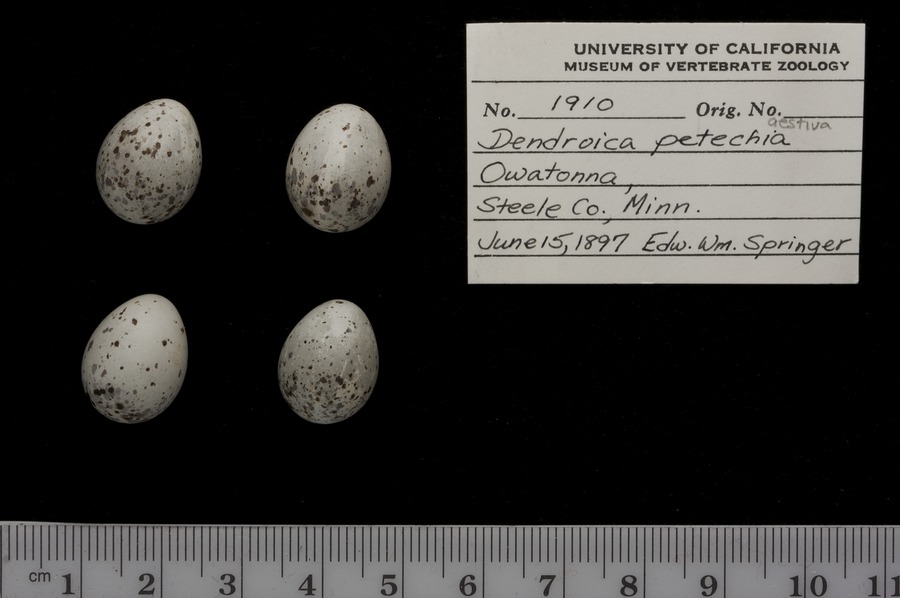 UNIVERSITY OF CALIFORNIA
MUSEUM OF VERTEBRATE ZOOLOGY
No. 1910 Orig. No.
aestiva
Dendroica petechia
Owatonna,
Steele Co., Minn.
June 15, 1897 Edw. Wm. Springer
cm 1 2 3 4 5 6 7 8 9 10 11